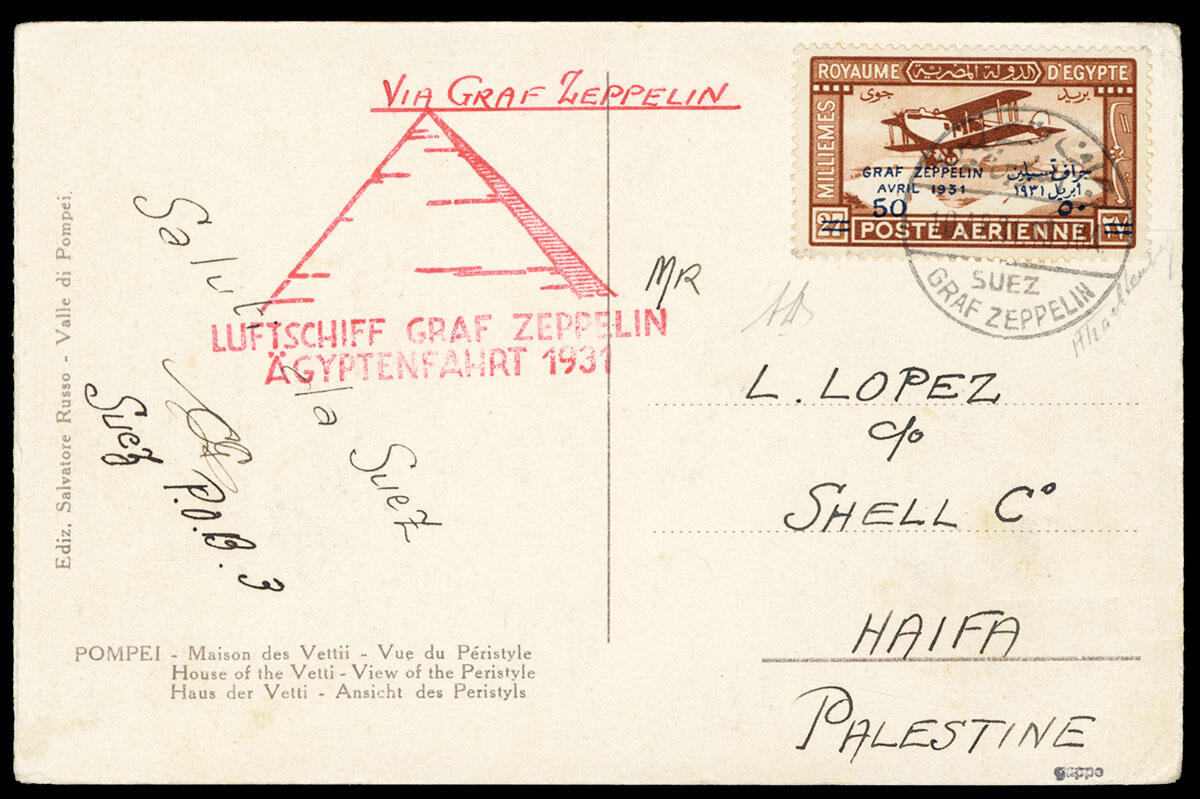 VIA GRAF ZEPPELIN
ROYAUME الدولة المصرية D'EGYPTE
جوى بريد
MILLIEMES
GRAF ZEPPELIN جراف تسبلين
AVRIL 1931 ابريل ١٩٣١
50 ٥٠
27 POSTE AÉRIENNE ٢٧
SUEZ
GRAF ZEPPELIN
LUFTSCHIFF GRAF ZEPPELIN
ÄGYPTENFAHRT 1931
MR
Saluti
Suez
P.O.B. 3
Suez
L. LOPEZ
c/o
SHELL Cº
HAIFA
PALESTINE
Ediz. Salvatore Russo - Valle di Pompei.
POMPEI - Maison des Vettii - Vue du Péristyle
House of the Vetti - View of the Peristyle
Haus der Vetti - Ansicht des Peristyls